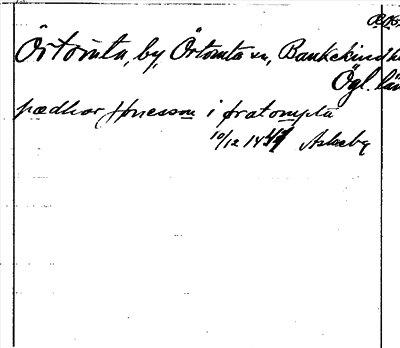 Örtomta, by, Örtomta sn, Bankekinds h
Ögl. län
pædhar Jonesson i øratompta
10/12 1447 Askeby